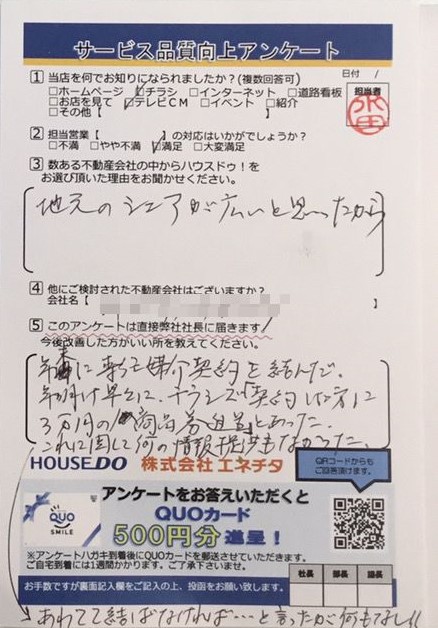 サービス品質向上アンケート
1 当店を何でお知りになられましたか?(複数回答可)
日付 /
□ホームページ □チラシ □インターネット □道路看板
□お店を見て □テレビCM □イベント □紹介
□その他【 】
担当者
2 担当営業【 】の対応はいかがでしょうか?
□不満 □やや不満 □満足 □大変満足
3 数ある不動産会社の中からハウスドゥ!を
お選び頂いた理由をお聞かせください。
地元のシェアが広いと思ったから
4 他にご検討された不動産会社はございますか?
会社名【 】
5 このアンケートは直接弊社社長に届きます!
今後改善した方がいい所を教えてください。
年末に専任媒介契約を結んだ。
年明け早々に、チラシで「契約した方に
3万円の商品券進呈」とあった。
これに関して何の情報提供もなかった。
HOUSEDO 株式会社 エネチタ
QRコードからも
ご回答頂けます。
アンケートをお答えいただくと
QUOカード
500円分 進呈!
QUO
SMILE
※アンケートハガキ到着後にQUOカードを郵送させていただきます。
ご自宅到着には1週間かかります。ご了承くださいませ。
社長 部長 店長
お手数ですが裏面記入欄をご記入の上、投函をお願い致します。
あわてて結ばなければ…と言ったが何もなし!!